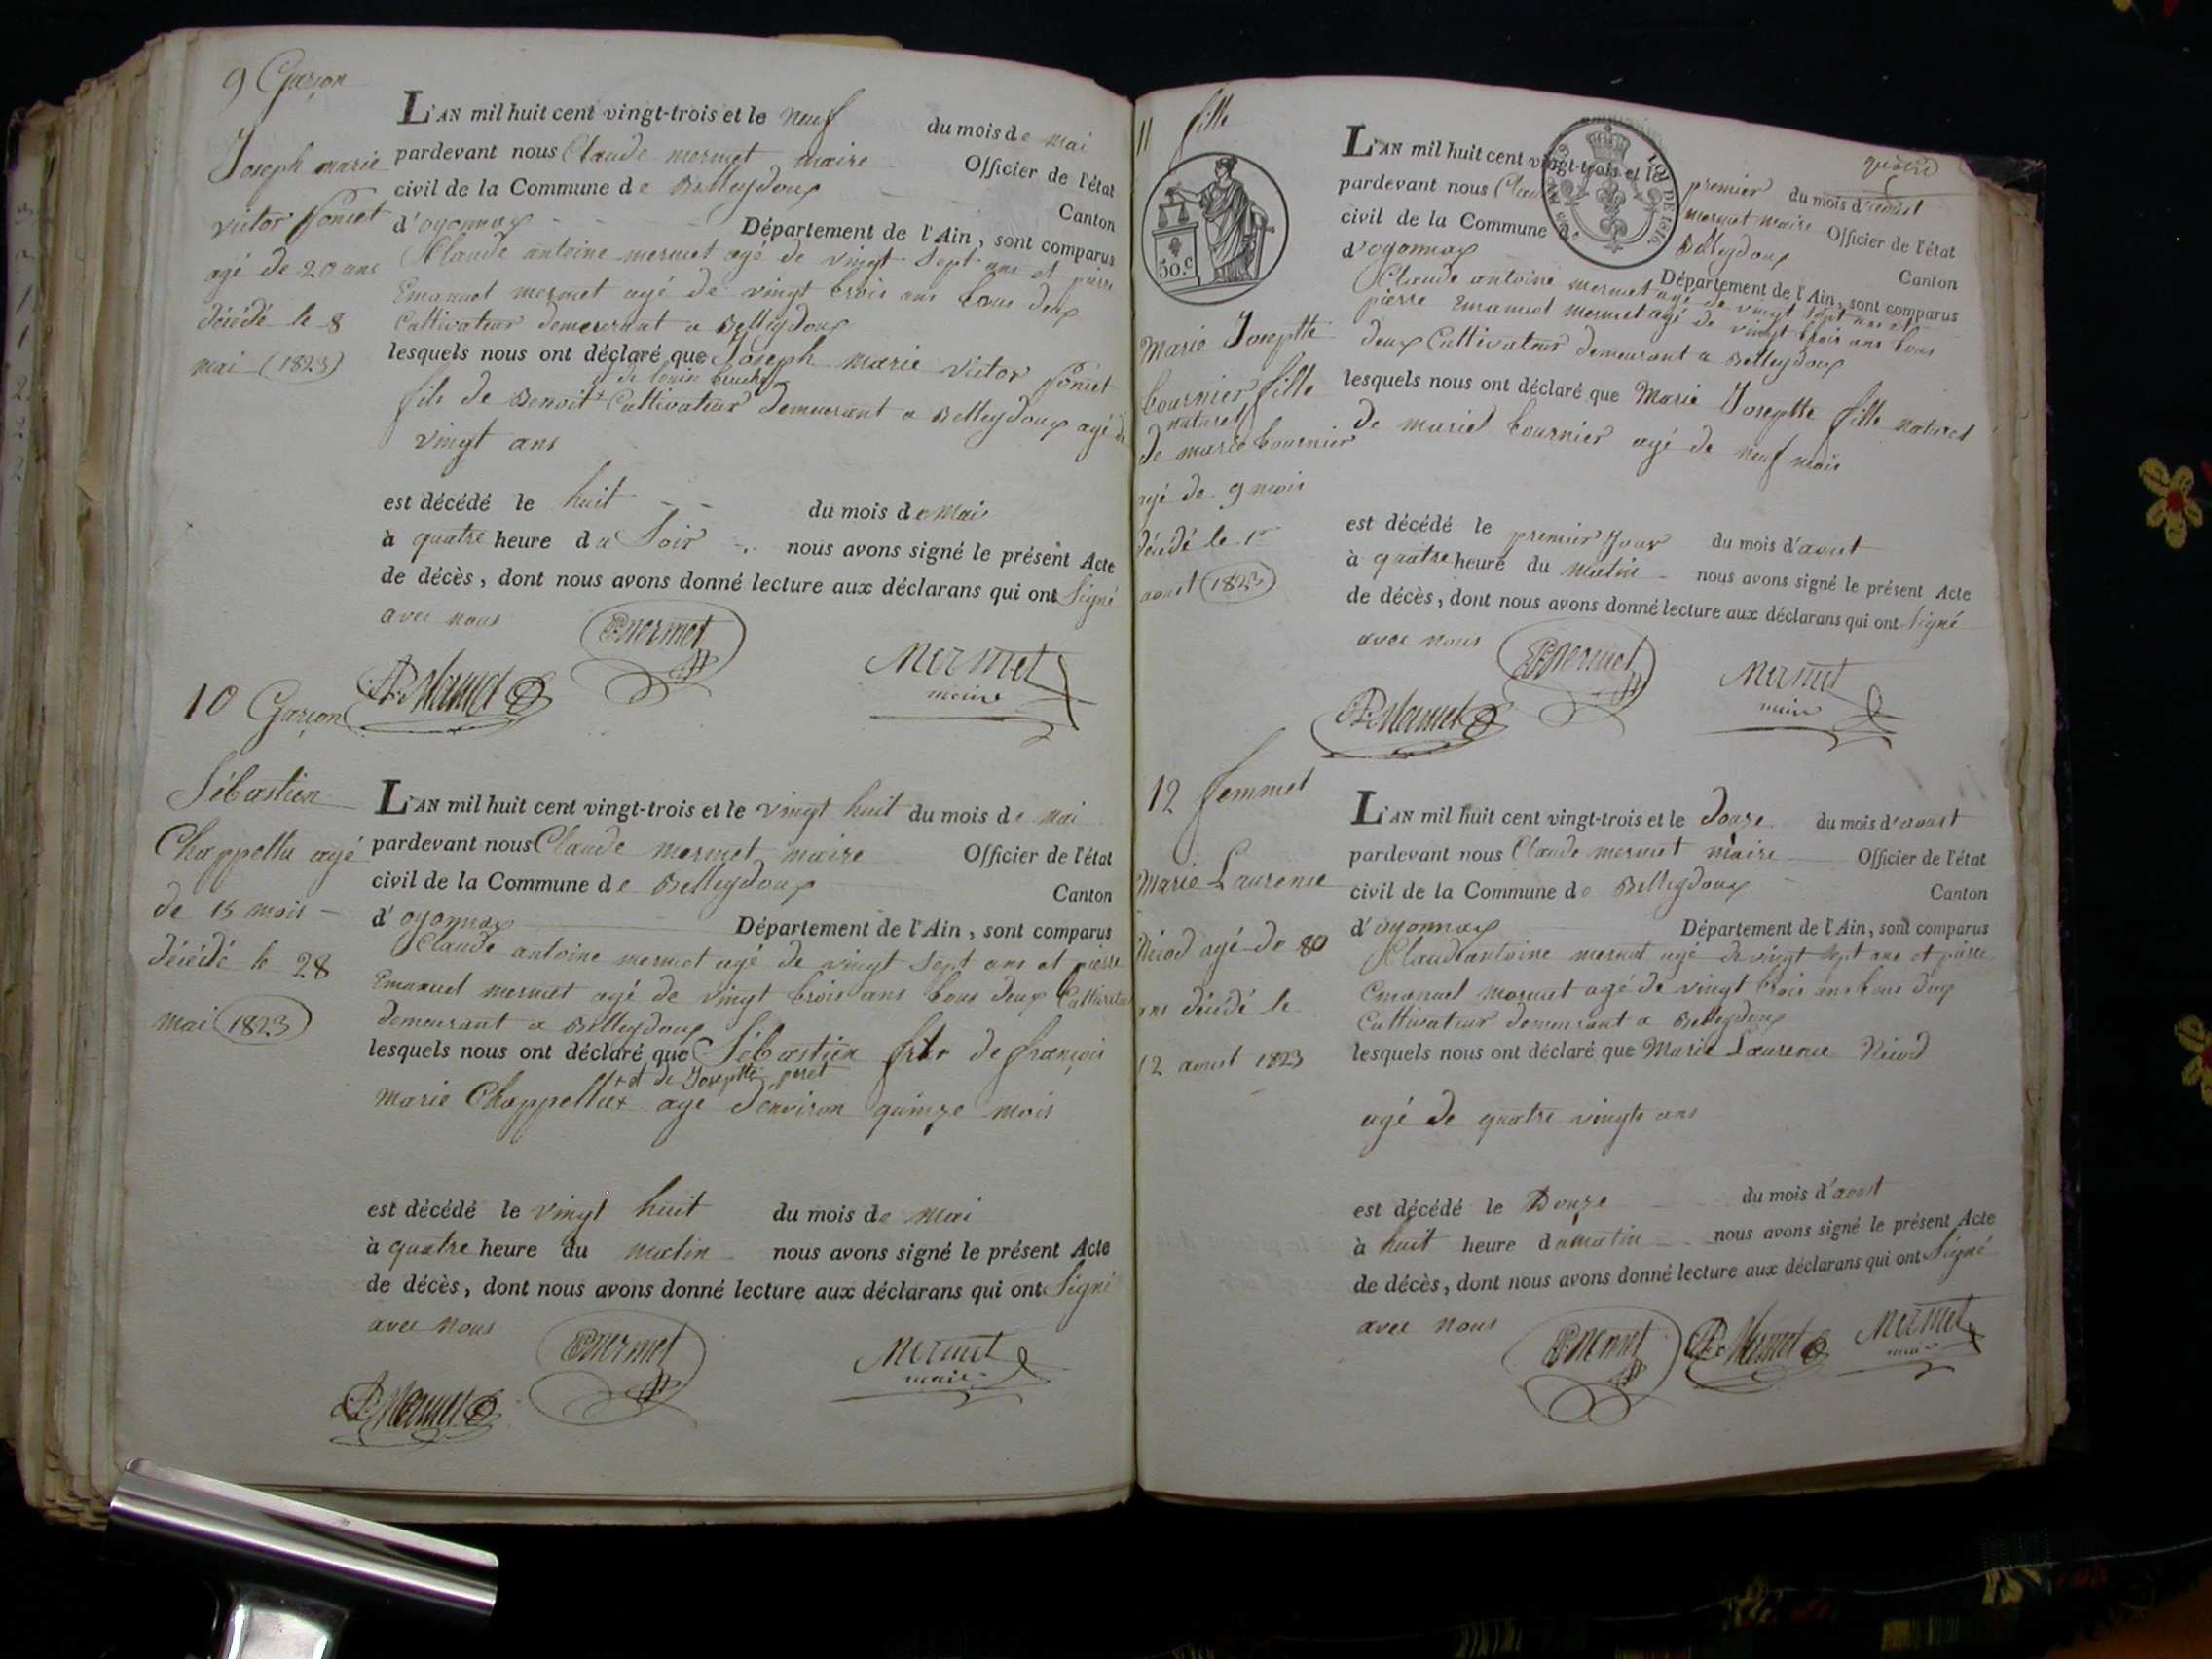 9 Garçon
Joseph marie
victor Poncet
agé de 20 ans
décédé le 8
mai (1823)
L'AN mil huit cent vingt-trois et le neuf du mois de mai
pardevant nous Claude mermet maire Officier de l'état
civil de la Commune de Belleydoux Canton
d'oyonnax Département de l'Ain, sont comparus
Claude antoine mermet agé de vingt Sept ans et pierre
Emanuel mermet agé de vingt trois ans tous deux
Cultivateur demeurant a Belleydoux
lesquels nous ont déclaré que Joseph marie victor Poncet
et de
fils de Benoit Cultivateur demeurant a Belleydoux agé de
vingt ans
est décédé le huit du mois de mai
à quatre heure du Soir nous avons signé le présent Acte
de décès, dont nous avons donné lecture aux déclarans qui ont Signé
avec nous
Mermet
maire
10 Garçon
Sébastien
Chappellu agé
de 15 mois
décédé le 28
mai (1823)
L'AN mil huit cent vingt-trois et le vingt huit du mois de mai
pardevant nous Claude mermet maire Officier de l'état
civil de la Commune de Belleydoux Canton
d'oyonnax Département de l'Ain, sont comparus
Claude antoine mermet agé de vingt Sept ans et pierre
Emanuel mermet agé de vingt trois ans tous deux Cultivateur
demeurant a Belleydoux
lesquels nous ont déclaré que Sébastien fils de françois
+ et de Josephte peret
marie Chappellu + agé d'environ quinze mois
est décédé le vingt huit du mois de mai
à quatre heure du matin nous avons signé le présent Acte
de décès, dont nous avons donné lecture aux déclarans qui ont Signé
avec nous
Mermet
maire
11 fille
50.c
LOI DE 1816.
Marie Josephte
tournier fille
naturelle
de marie tournier
agé de 9 mois
décédé le 1er
aoust (1823)
L'AN mil huit cent vingt-trois et le premier du mois d'aoust
pardevant nous Claude mermet maire Officier de l'état
civil de la Commune de Belleydoux Canton
d'oyonnax Département de l'Ain, sont comparus
Claude antoine mermet agé de vingt Sept ans et
pierre Emanuel mermet agé de vingt trois ans tous
deux Cultivateur demeurant a Belleydoux
lesquels nous ont déclaré que Marie Josephte fille naturel
de mariel tournier agé de neuf mois
est décédé le premier Jour du mois d'aoust
à quatre heure du matin nous avons signé le présent Acte
de décès, dont nous avons donné lecture aux déclarans qui ont Signé
avec nous
Mermet
maire
12 femmel
Marie Laurence
Nicod agé de 80
ans décédé le
12 aoust 1823
L'AN mil huit cent vingt-trois et le Douze du mois d'aoust
pardevant nous Claude mermet maire Officier de l'état
civil de la Commune de Belleydoux Canton
d'oyonnax Département de l'Ain, sont comparus
Claude antoine mermet agé de vingt Sept ans et pierre
Emanuel mermet agé de vingt trois ans tous deux
Cultivateur demeurant a Belleydoux
lesquels nous ont déclaré que Marie Laurence Nicod
agé de quatre vingts ans
est décédé le Douze du mois d'aoust
à huit heure du matin nous avons signé le présent Acte
de décès, dont nous avons donné lecture aux déclarans qui ont Signé
avec nous
Mermet
maire